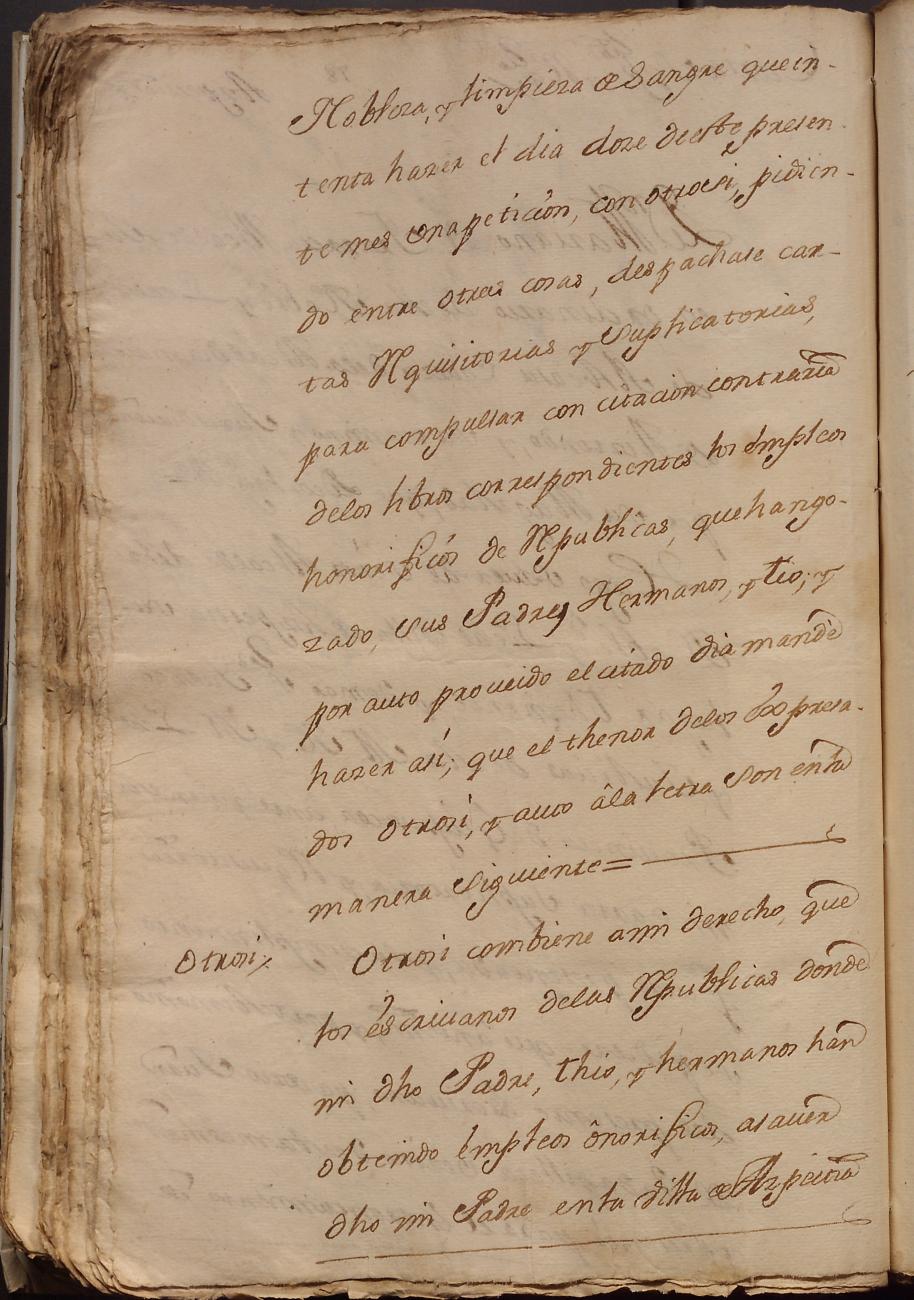 Nobleza, y limpieza de Sangre que in-
tenta hazer el dia doze de este presen-
te mes vna peticion, con otroesi, pidien-
do entre otras cosas, despachase car-
tas Rquisitorias y Suplicatorias,
para compulsar con citacion contraria
delos libros correspondientes los empleos
honorificos de Rpublicas, que han go-
zado, sus Padres, Hermanos, y tio; y
por auto proueido el citado dia mande
hazer asi; que el thenor delos expresa-
dos otrosi, y auto âla letra Son en la
manera Siguiente=
Otrosi Otrosi combiene a mi derecho, que
los escriuanos delas Rpublicas donde
mi dho Padre, thio, y hermanos han
obtenido êmpleos ônorificos, asauer
dho mi Padre en la Villa de Azpeitia